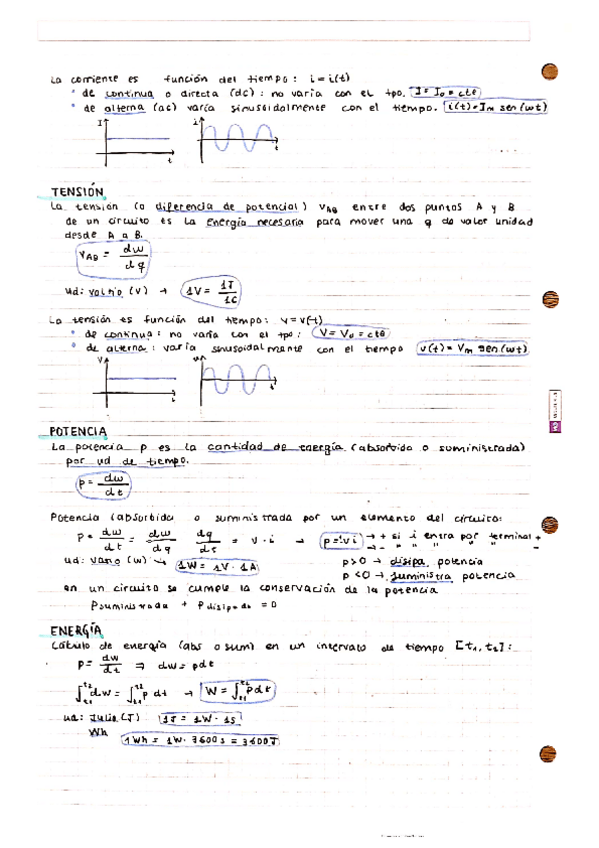 La corriente es función del tiempo: i = i(t)
• de continua o directa (dc): no varía con el tpo. I = I₀ = cte
• de alterna (ac) varía sinusoidalmente con el tiempo. i(t) = Iₘ sen(wt)
I i
t t
TENSIÓN
La tensión (o diferencia de potencial) V_AB entre dos puntos A y B
de un circuito es la energía necesaria para mover una q de valor unidad
desde A a B.
V_AB = dw/dq
ud: voltio (V) → 1V = 1J/1C
La tensión es función del tiempo: v = v(t)
• de continua: no varía con el tpo: V = V₀ = cte
• de alterna: varía sinusoidalmente con el tiempo v(t) = Vₘ sen(wt)
V
t t
POTENCIA
La potencia p es la cantidad de energía (absorbida o suministrada)
por ud de tiempo.
p = dw/dt
Potencia (absorbida o suministrada por un elemento del circuito:
P = dw/dt = dw/dq dq/dt = v · i → p = ± v i → + si i entra por terminal +
→ - " " " " " -
ud: vatio (W) → 1W = 1V · 1A p>0 → disipa potencia
p<0 → suministra potencia
en un circuito se cumple la conservación de la potencia
Psuministrada + Pdisipada = 0
ENERGÍA
Cálculo de energía (abs o sum) en un intervalo de tiempo [t₁, t₂]:
p = dw/dt ⇒ dw = pdt
∫t₁t₂ dw = ∫t₁t₂ p dt → W = ∫t₁t₂ p dt
ud: Julio (J) 1J = 1W · 1s
Wh 1Wh = 1W · 3600s = 3600J